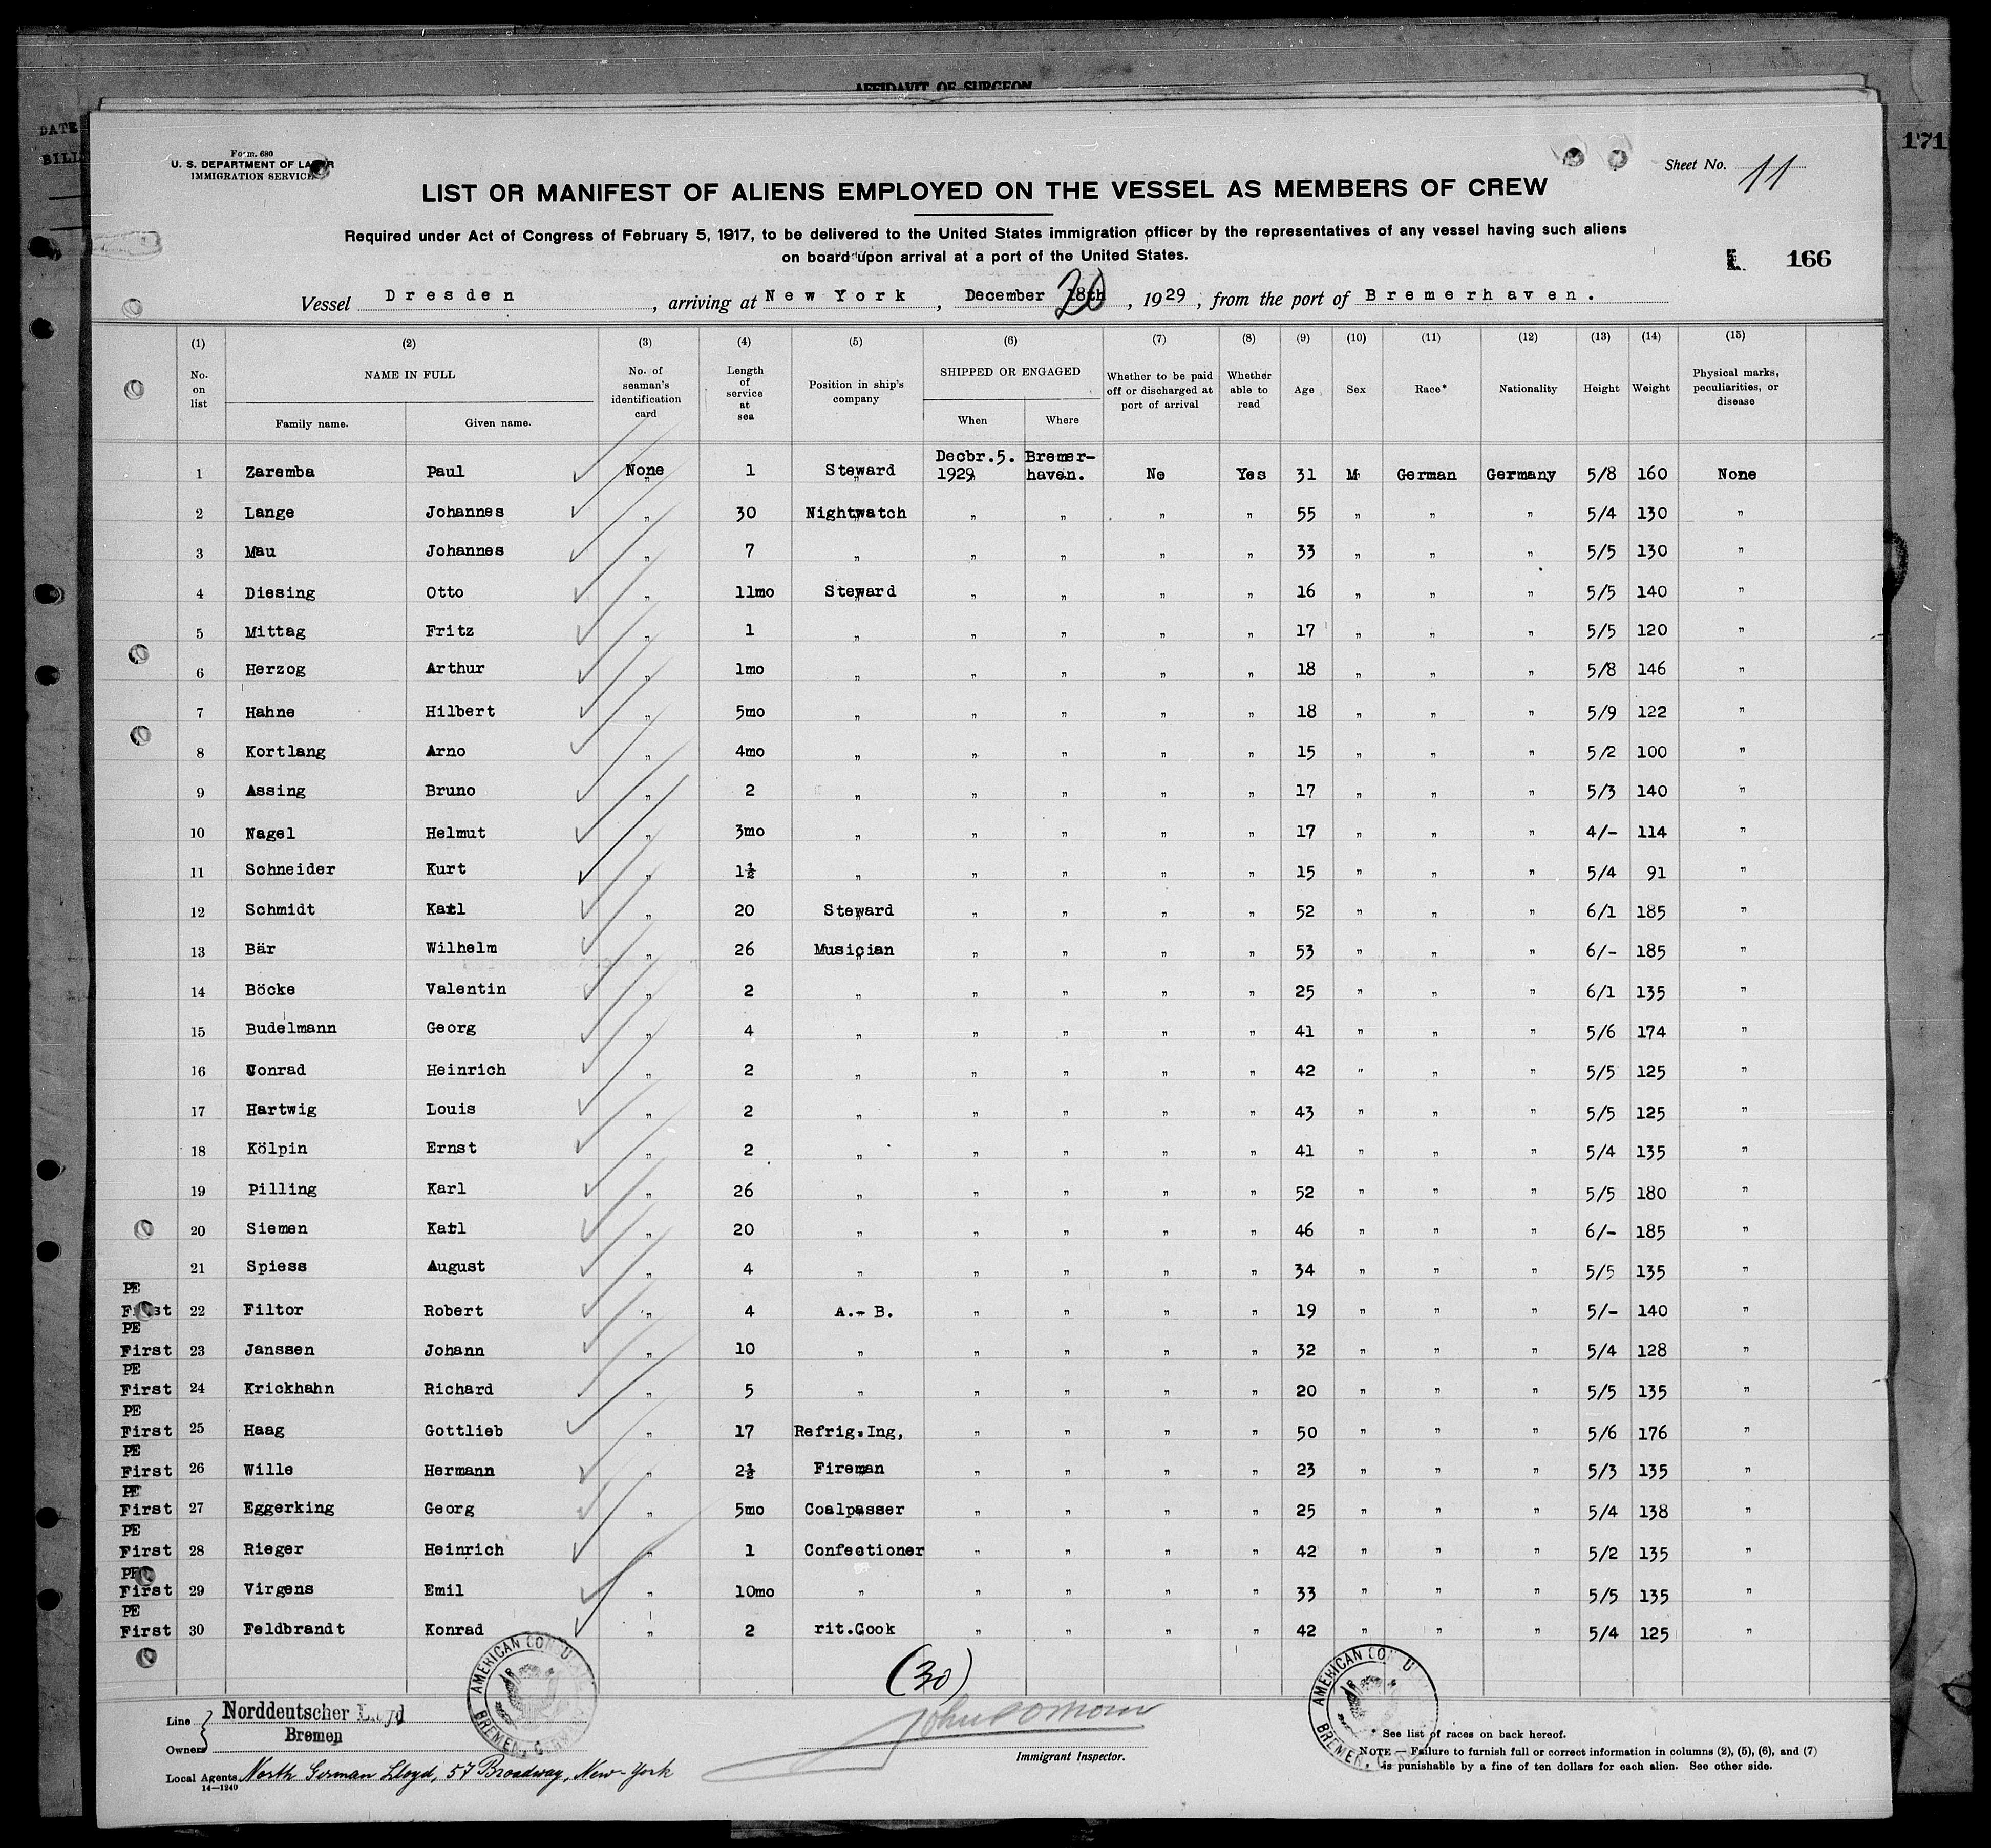 AFFIDAVIT OF SURGEON
DATE
171
Form 680
U. S. DEPARTMENT OF LABOR
IMMIGRATION SERVICE
Sheet No. 11
LIST OR MANIFEST OF ALIENS EMPLOYED ON THE VESSEL AS MEMBERS OF CREW
Required under Act of Congress of February 5, 1917, to be delivered to the United States immigration officer by the representatives of any vessel having such aliens
on board upon arrival at a port of the United States.
166
Vessel Dresden, arriving at New York, December 18th 20, 1929, from the port of Bremerhaven.
(1) (2) (3) (4) (5) (6) (7) (8) (9) (10) (11) (12) (13) (14) (15)
No. on list NAME IN FULL Family name. Given name. No. of seaman's identification card Length of service at sea Position in ship's company SHIPPED OR ENGAGED When Where Whether to be paid off or discharged at port of arrival Whether able to read Age Sex Race* Nationality Height Weight Physical marks, peculiarities, or disease
1 Zaremba Paul None 1 Steward Decbr.5. 1929 Bremer-haven. No Yes 31 M German Germany 5/8 160 None
2 Lange Johannes " 30 Nightwatch " " " " 55 " " " 5/4 130 "
3 Mau Johannes " 7 " " " " " 33 " " " 5/5 130 "
4 Diesing Otto " 11mo Steward " " " " 16 " " " 5/5 140 "
5 Mittag Fritz " 1 " " " " " 17 " " " 5/5 120 "
6 Herzog Arthur " 1mo " " " " " 18 " " " 5/8 146 "
7 Hahne Hilbert " 5mo " " " " " 18 " " " 5/9 122 "
8 Kortlang Arno " 4mo " " " " " 15 " " " 5/2 100 "
9 Assing Bruno " 2 " " " " " 17 " " " 5/3 140 "
10 Nagel Helmut " 3mo " " " " " 17 " " " 4/- 114 "
11 Schneider Kurt " 1½ " " " " " 15 " " " 5/4 91 "
12 Schmidt Karl " 20 Steward " " " " 52 " " " 6/1 185 "
13 Bär Wilhelm " 26 Musician " " " " 53 " " " 6/- 185 "
14 Böcke Valentin " 2 " " " " " 25 " " " 6/1 135 "
15 Budelmann Georg " 4 " " " " " 41 " " " 5/6 174 "
16 Conrad Heinrich " 2 " " " " " 42 " " " 5/5 125 "
17 Hartwig Louis " 2 " " " " " 43 " " " 5/5 125 "
18 Kölpin Ernst " 2 " " " " " 41 " " " 5/4 135 "
19 Pilling Karl " 26 " " " " " 52 " " " 5/5 180 "
20 Siemen Karl " 20 " " " " " 46 " " " 6/- 185 "
21 Spiess August " 4 " " " " " 34 " " " 5/5 135 "
PE First 22 Filtor Robert " 4 A.- B. " " " " 19 " " " 5/- 140 "
PE First 23 Janssen Johann " 10 " " " " " 32 " " " 5/4 128 "
PE First 24 Krickhahn Richard " 5 " " " " " 20 " " " 5/5 135 "
PE First 25 Haag Gottlieb " 17 Refrig.Ing, " " " " 50 " " " 5/6 176 "
PE First 26 Wille Hermann " 2½ Fireman " " " " 23 " " " 5/3 135 "
PE First 27 Eggerking Georg " 5mo Coalpasser " " " " 25 " " " 5/4 138 "
PE First 28 Rieger Heinrich " 1 Confectioner " " " " 42 " " " 5/2 135 "
PE First 29 Virgens Emil " 10mo " " " " " 33 " " " 5/5 135 "
PE First 30 Feldbrandt Konrad " 2 rit.Cook " " " " 42 " " " 5/4 125 "
(30)
AMERICAN
BREMEN,
AMERICAN
BREMEN,
Line Norddeutscher Lloyd
Owners Bremen
Immigrant Inspector.
Local Agents North German Lloyd, 57 Broadway, New-York
14—1240
* See list of races on back hereof.
NOTE.—Failure to furnish full or correct information in columns (2), (5), (6), and (7)
is punishable by a fine of ten dollars for each alien. See other side.